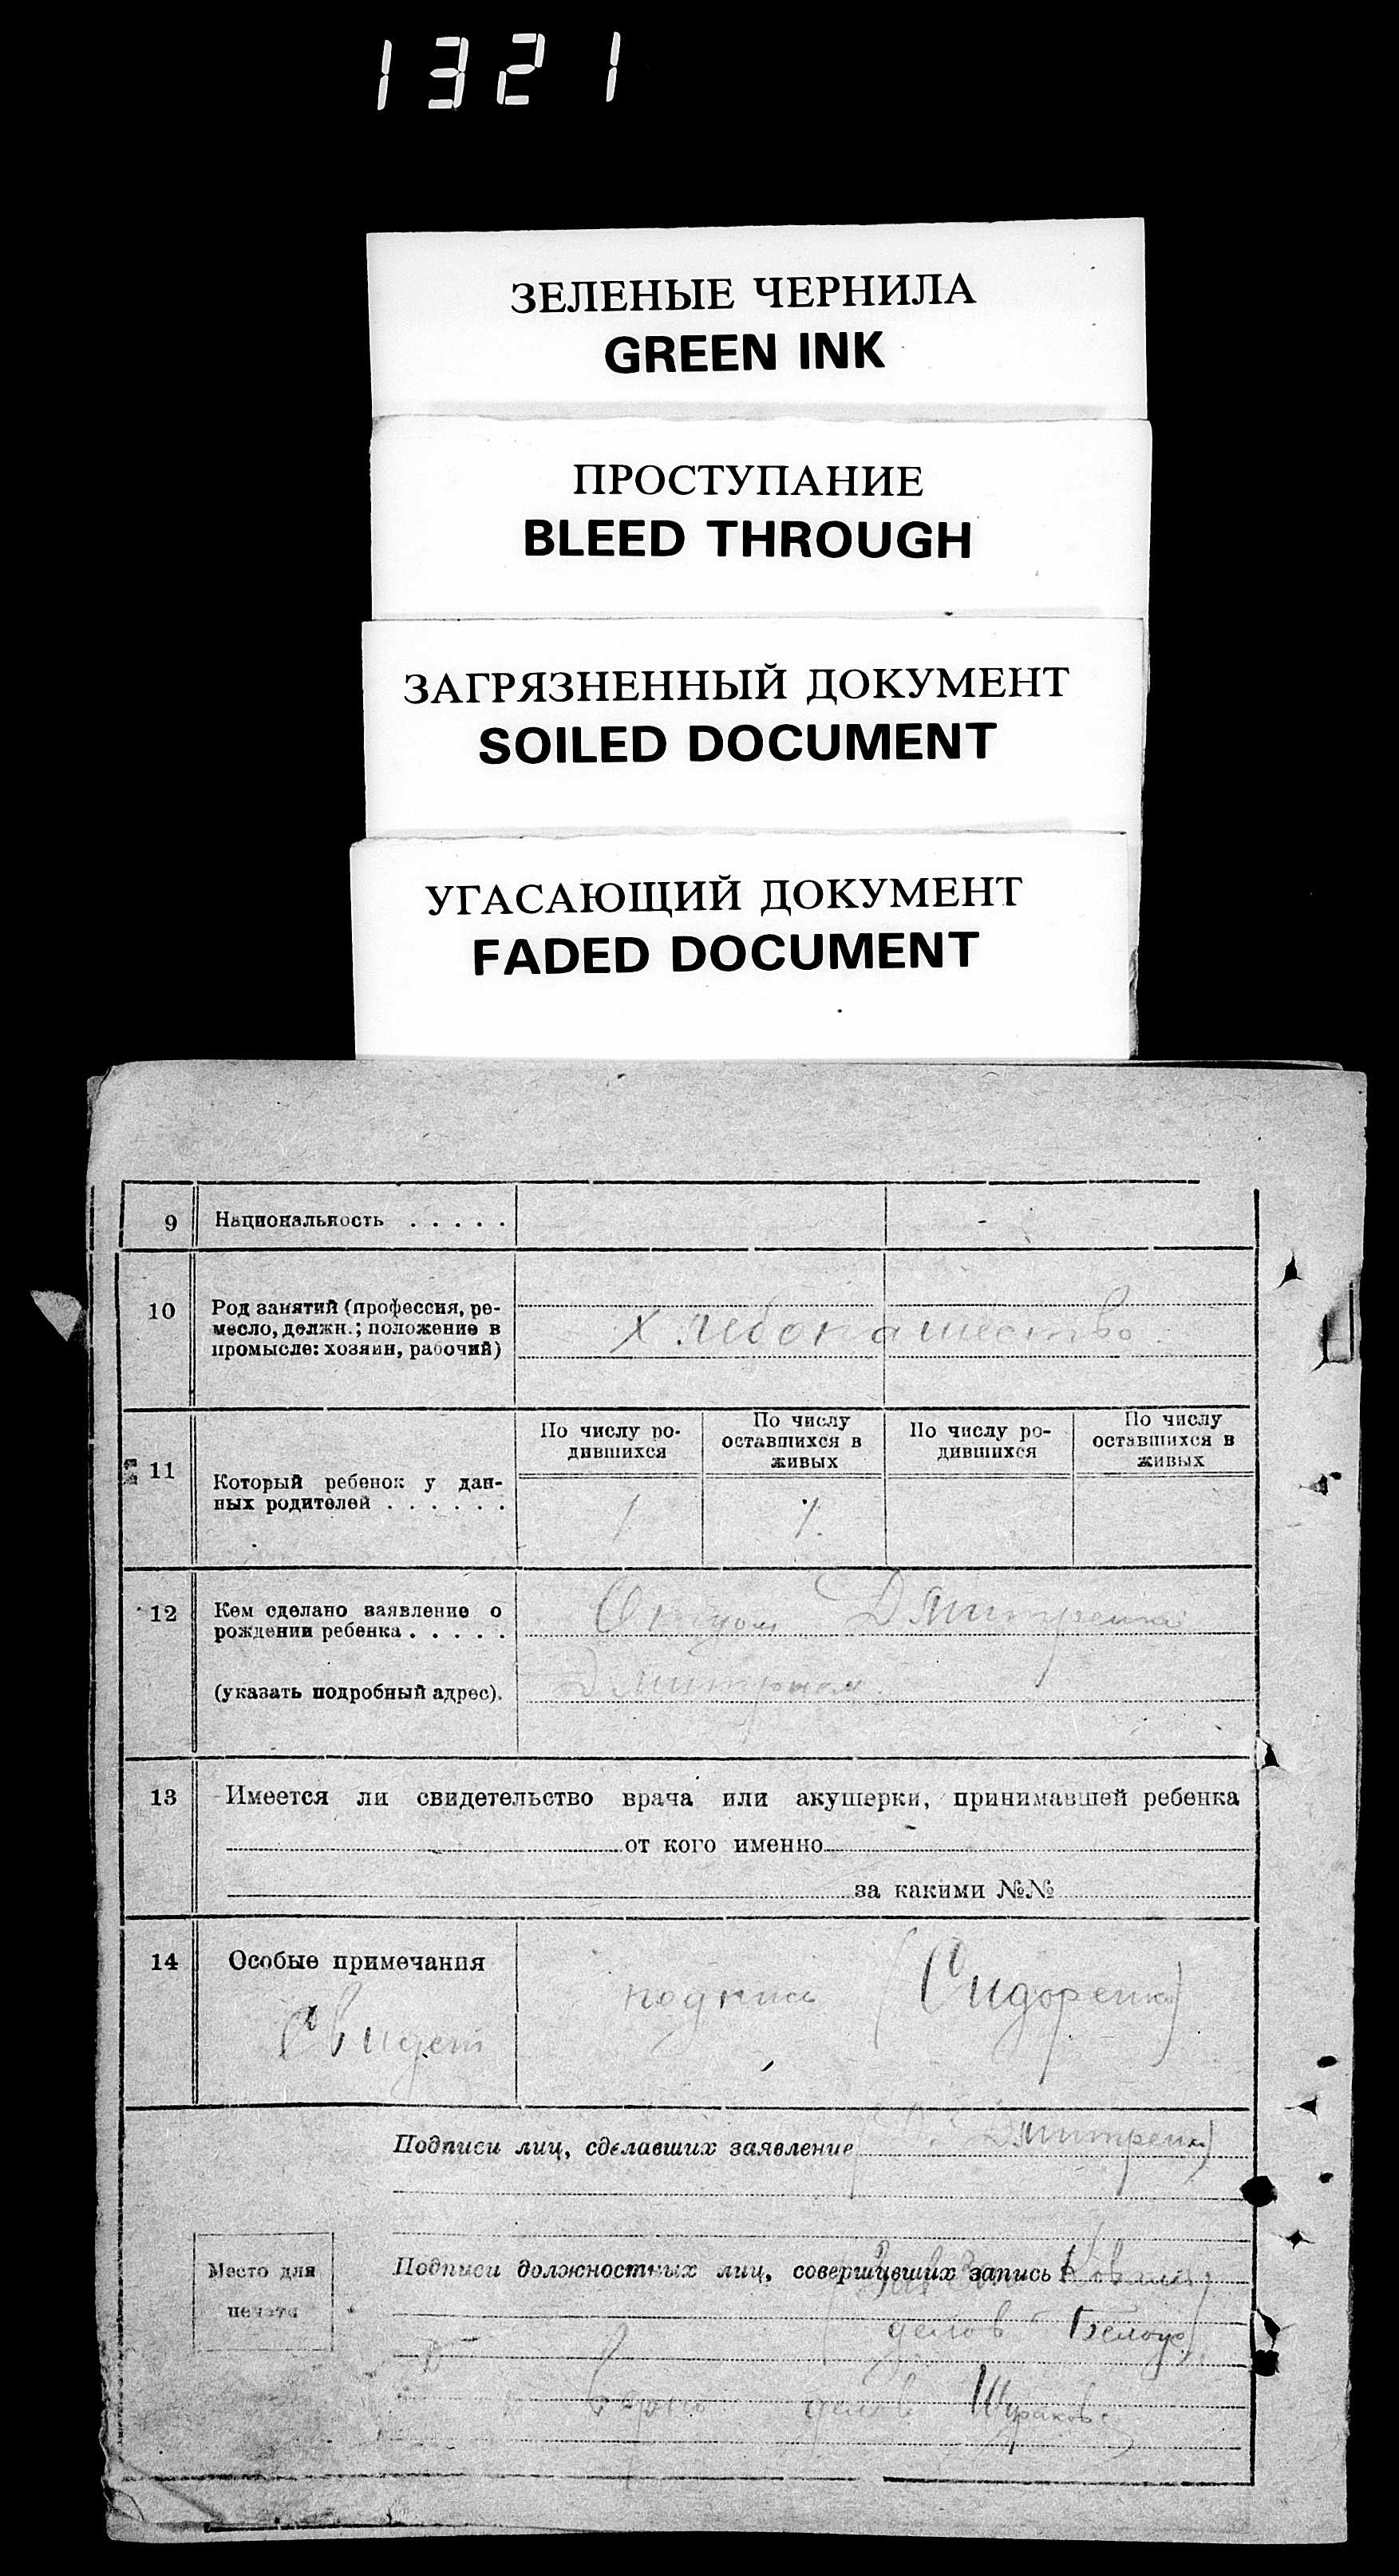 1321
ЗЕЛЕНЫЕ ЧЕРНИЛА
GREEN INK
ПРОСТУПАНИЕ
BLEED THROUGH
ЗАГРЯЗНЕННЫЙ ДОКУМЕНТ
SOILED DOCUMENT
УГАСАЮЩИЙ ДОКУМЕНТ
FADED DOCUMENT
9 Национальность . . . . .
10 Род занятий (профессия, ре-
месло, должн.; положение в
промысле: хозяин, рабочий)
хлебопашество
11 Который ребенок у дан-
ных родителей . . . . . .
По числу ро-
дившихся
По числу
оставшихся в
живых
По числу ро-
дившихся
По числу
оставшихся в
живых
1 1.
12 Кем сделано заявление о
рождении ребенка . . . . .
(указать подробный адрес).
Отцом Дмитренко
Дмитрием
13 Имеется ли свидетельство врача или акушерки, принимавшей ребенка
от кого именно
за какими №№
14 Особые примечания
Свидет
подпись (Сидоренко)
Подписи лиц, сделавших заявление Д. Дмитренко)
Место для
печати
Подписи должностных лиц, совершивших запись
делов
делов